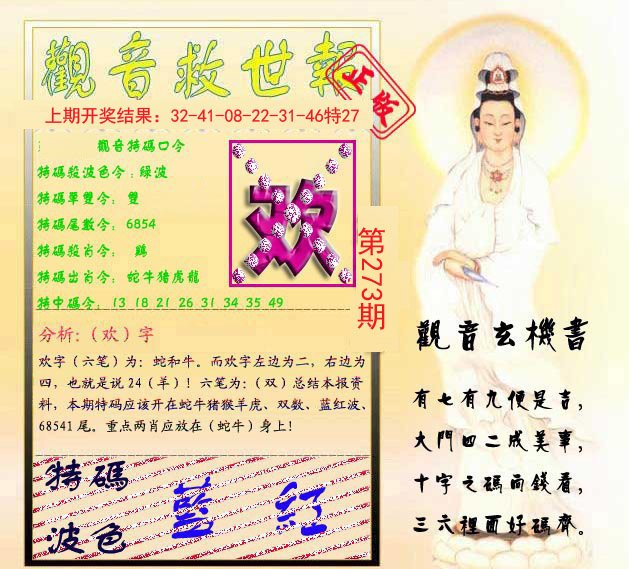 觀音救世報
正版
上期开奖结果：32-41-08-22-31-46特27
觀音特碼口令
特碼殺波色令：綠波
特碼單雙令： 雙
特碼尾數令： 6854
特碼殺肖令： 鷄
特碼出肖令： 蛇牛猪虎龍
特中碼令： 13 18 21 26 31 34 35 49
欢
第273期
分析：（欢）字
欢字（六笔）为：蛇和牛。而欢字左边为二，右边为
四，也就是说 24（羊）！六笔为：（双）总结本报资
料，本期特码应该开在蛇牛猪猴羊虎、双数、蓝红波、
68541 尾。重点两肖应放在（蛇牛）身上！
特碼
波色
藍 紅
觀音玄機書
有七有九便是吉，
大門四二成美事，
十字之碼向錢看，
三六裡面好碼齊。